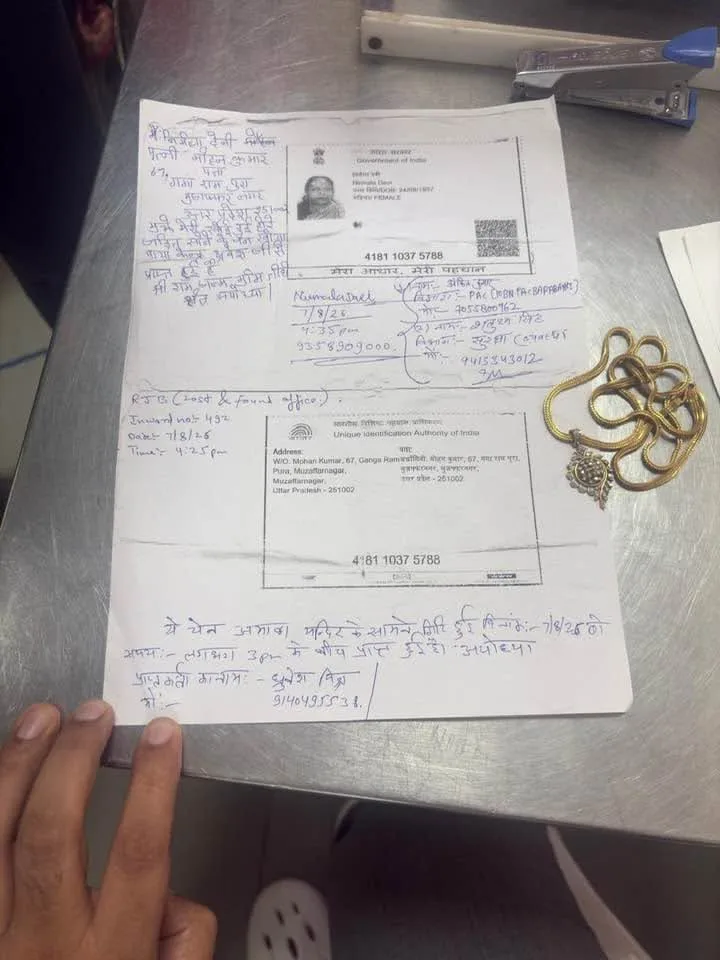 मैं निर्मला देवी
पत्नी मोहन कुमार
पता
67, गंगा राम पुरा
मुजफ्फर नगर
उत्तर प्रदेश 251
प्राप्त हुई है
श्री राम जन्म भूमि तीर्थ
क्षेत्र
भारत सरकार
Government of India
निर्मला देवी
Nirmala Devi
जन्म तिथि/DOB: 24/08/1957
महिला/ FEMALE
4181 1037 5788
मेरा आधार, मेरी पहचान
Nirmala Devi
7/8/26
4:35pm
9358909000
विभाग:- PAC
मो:- 7055800962
2) नाम:-
विभाग:- सुरक्षा
मो:- 9413343012
RJB (Lost & found office).
Inward no:- 492
Date:- 7/8/26
Time:- 4:25pm
भारतीय विशिष्ट पहचान प्राधिकरण
Unique Identification Authority of India
Address:
W/O. Mohan Kumar, 67, Ganga Ram
Pura, Muzaffarnagar,
Muzaffarnagar,
Uttar Pradesh - 251002
पता:
अर्धांगिनी: मोहन कुमार, 67, गंगा राम पुरा,
मुज़फ्फरनगर, मुज़फ्फरनगर,
उत्तर प्रदेश - 251002
4181 1037 5788
ये चेन अमावा मन्दिर के सामने गिरी हुई दिनांक:- 7/8/26 को
समय:- लगभग 3pm के बीच प्राप्त हुई है। अयोध्या
प्राप्तकर्ता का नाम:-
मो:- 9140495538